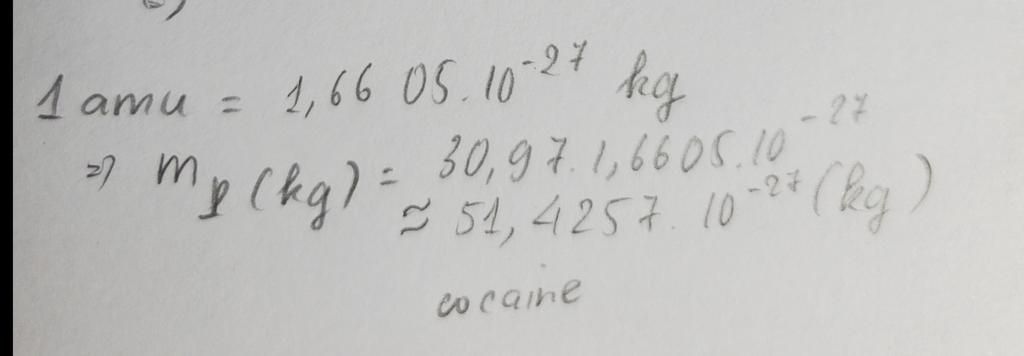 1 amu = 1,6605.10⁻²⁷ kg
=> m_P (kg) = 30,97.1,6605.10⁻²⁷
≈ 51,4257.10⁻²⁷ (kg)
cocaine